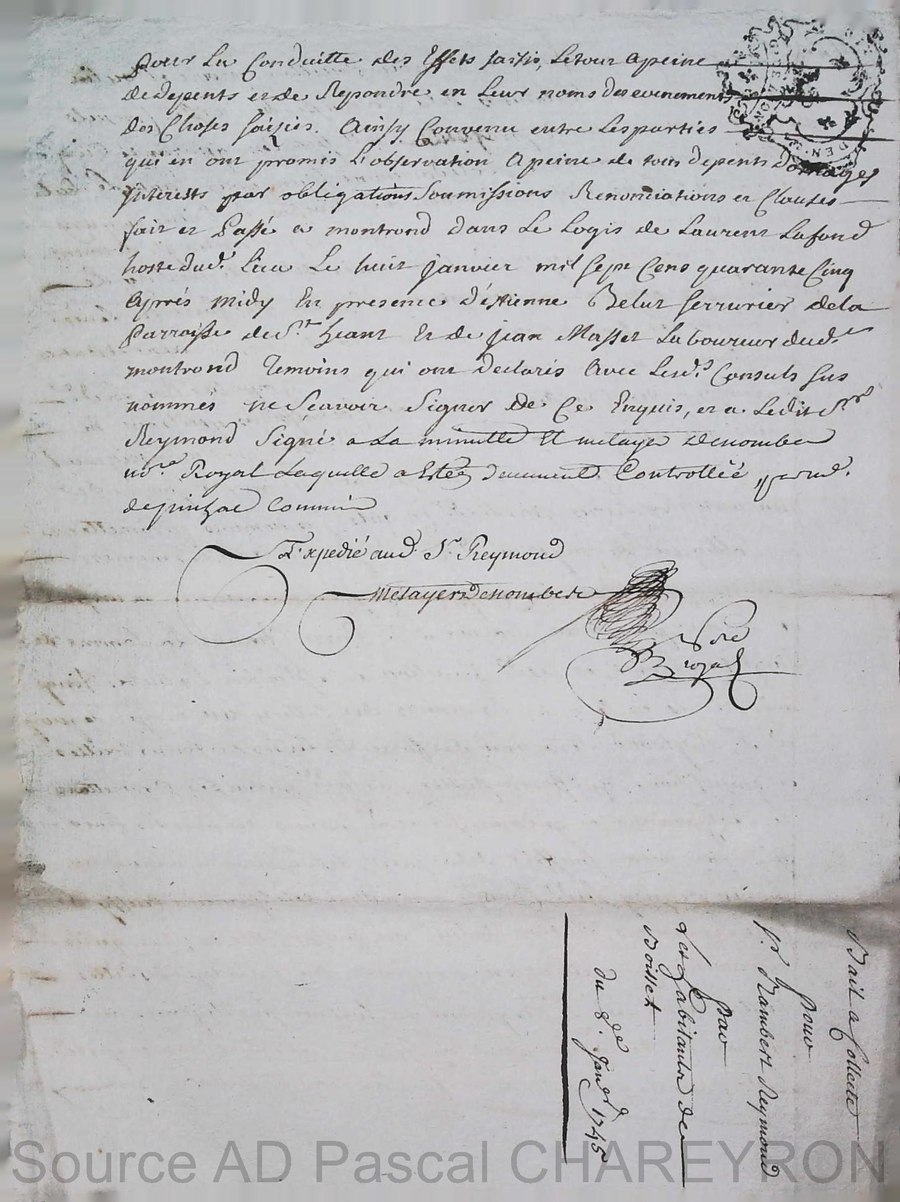 pour La Conduitte des Effets saisis, Le tour a peine
de depents et de Repondre en Leur noms des evenements
des Choses saisies. Ainsy Convenu entre Les parties
qui en ont promis L'observation a peine de tous depents domages
interests par obligations Soumissions Renonciations et Clauses
fait et Passé a montrond dans Le Logis de Laurent Lafond
hoste dud. Lieu Le huit janvier mil sept Cens quarante Cinq
Aprés midy En presence d'éstienne Belut serrurier de la
Parroisse de St. heant Et de jean Masset Laboureur dud.
montrond Temoins qui ont declarés Avec Lesd.s Consuls sus
nommés ne Scavoir Signer De Ce Enquis, et a Ledit Sr
Reymond Signé a La minutte Et metayer Denombre
no.re Royal Laquelle a Estée deuement Controllée
Commis
Expedié aud. Sr. Reymond
Metayer Denombre
Nore
Royal
Bail a Collecte
pour
Sr. Rambert Reymond
par
Les habitants de
Boisset
du 8e. Janv. 1745
Source AD Pascal CHAREYRON